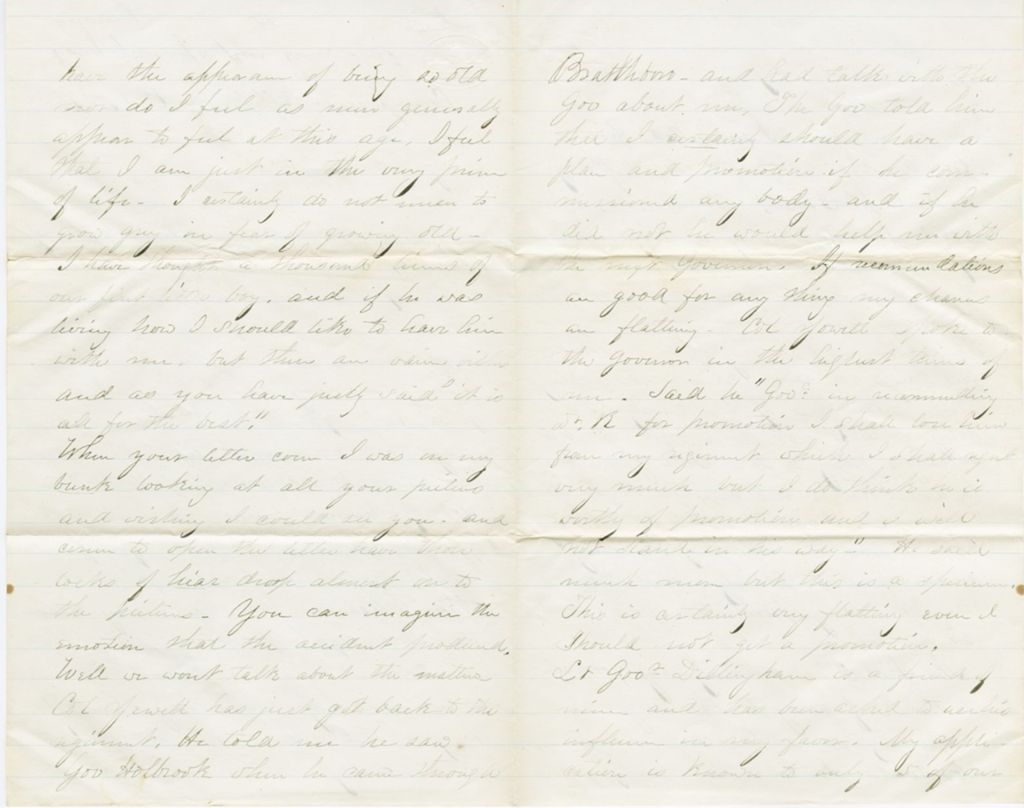 have the appearam of being so old
nor do I feel as men generally
appear to feel at this age. I feel
that I am just in the very prime
of life - I certainly do not mean to
grow grey in fear of growing old -
I have thought a thousand times of
our first born boy. and if he was
living how I should like to have him
with me. but these are vain
and as you have justly said "it is
all for the best."
When your letter come I was on my
bunk looking at all your pictures
and wishing I could see you. and
come to open the letter have those
locks of hiar drop almost on to
the pictures - You can imagine the
emotion that the accident produced.
Well we wont talk about the matter
Col Jewett has just got back to the
regiment. He told me he saw
Gov Holbrook when he came through
Brattleboro - and had talk with the
Gov about me. The Gov told him
that I certainly should have a
plan and promotion if he com-
missioned any body - and if he
did not he would help me with
the next Governor. If recommendations
are good for any thing my chances
are flatting. Col Jewett spoke to
the Govenor in the highest terms of
me. Said he "Gov: in recommending
Dr. R for promotion I shall lose him
from my regiment which I shall regret
very much but I do think he is
worthy of promotion and I will
not stand in his way." He said
much more but this is a specimen.
This is certainly very flatting even I
should not get a promotion.
Lt Govr Dillingham is a friend of
mine and has been asked to use his
influence in my favor. My appli-
cation is known to only 2 of our